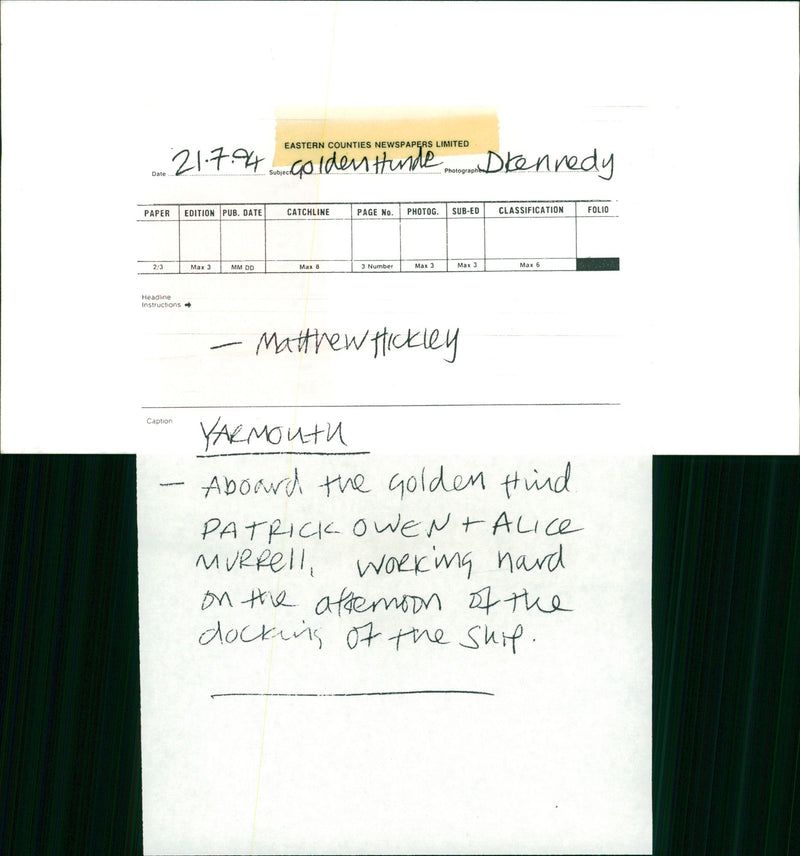 EASTERN COUNTIES NEWSPAPERS LIMITED
Date 21.7.94 Subject Golden Hinde Photographer D Kennedy
PAPER EDITION PUB. DATE CATCHLINE PAGE No. PHOTOG. SUB-ED CLASSIFICATION FOLIO
2/3 Max 3 MM DD Max 8 3 Number Max 3 Max 3 Max 6
Headline
Instructions
— Matthew Hickley
Caption
YARMOUTH
— Aboard the Golden Hind
PATRICK OWEN + ALICE
MURRELL, working hard
on the afternoon of the
docking of the ship.